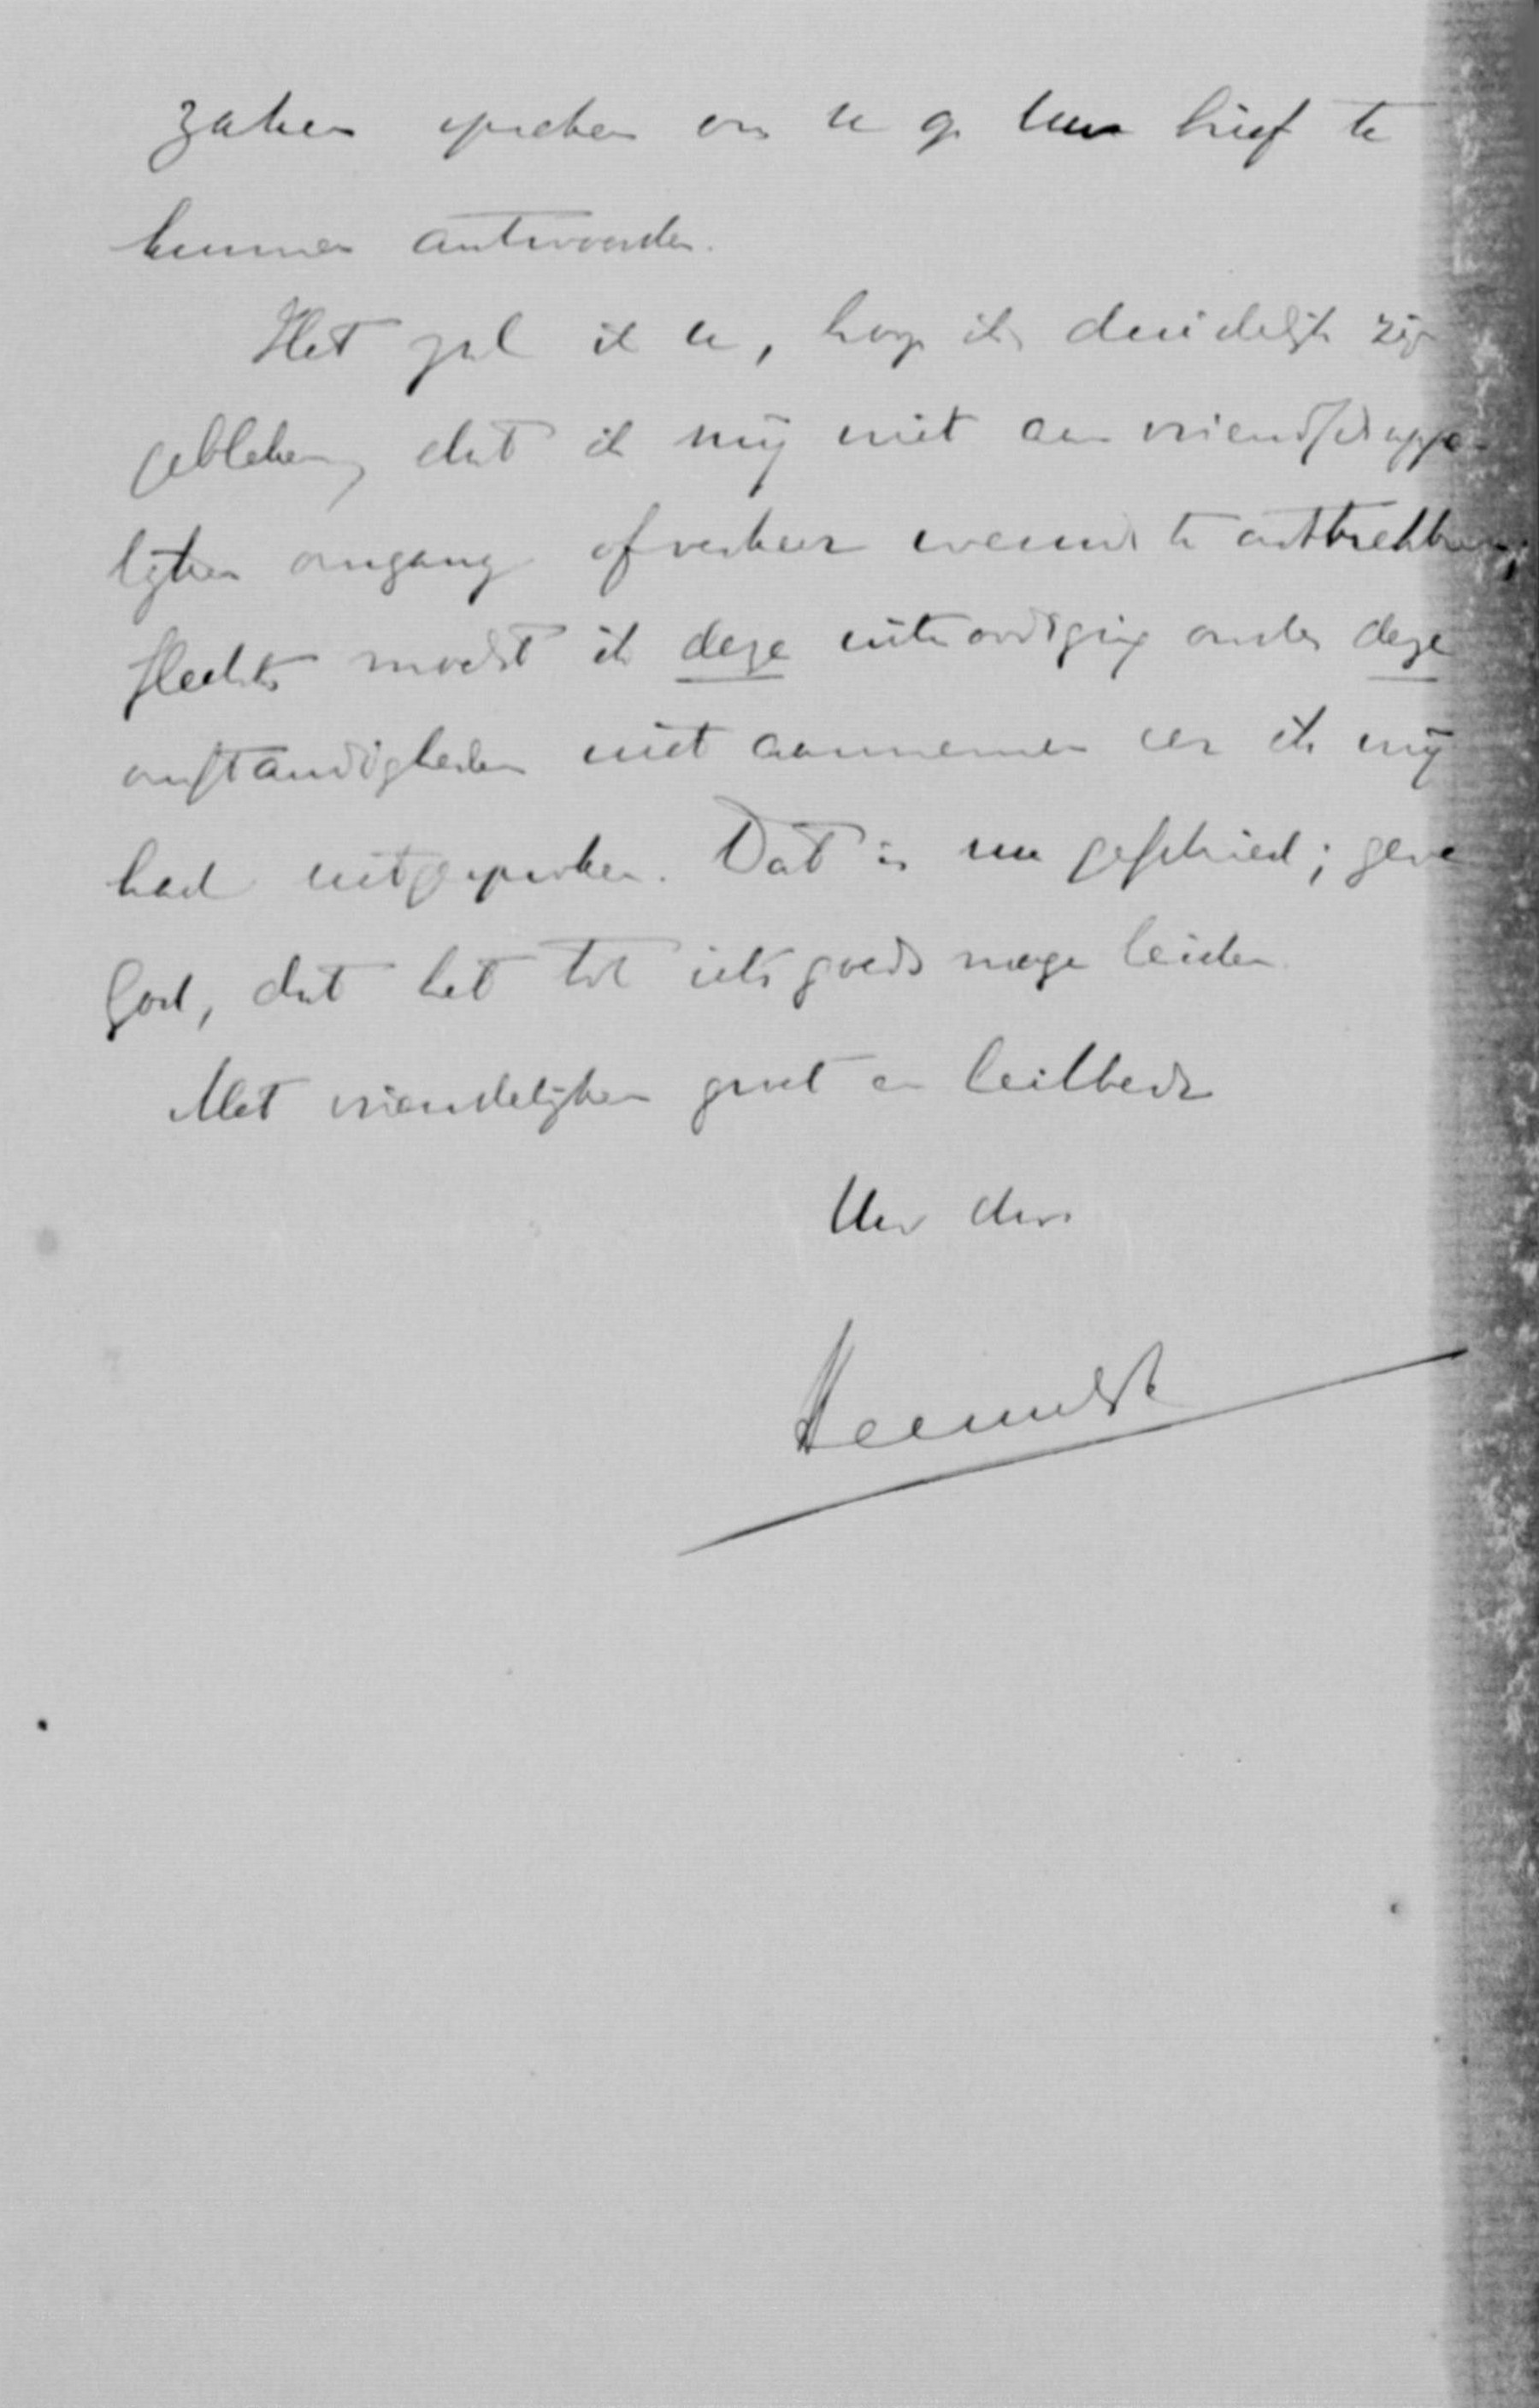 zaken spreken om u op Uwen brief te
kunnen antwoorden.
Het zal U, hoop ik, duidelijk zijn
gebleken, dat ik mij niet aan vriendschappe-
lijken omgang of verkeer wensch te onttrekken;
slechts mocht ik deze uitnoodiging onder deze
omstandigheden niet aannemen eer ik mij
had uitgesproken. Dat is nu geschied; geve
God, dat het tot iets goeds moge leiden.
Met vriendelijken groet en heilbede
Uw dw.
Heemskerk